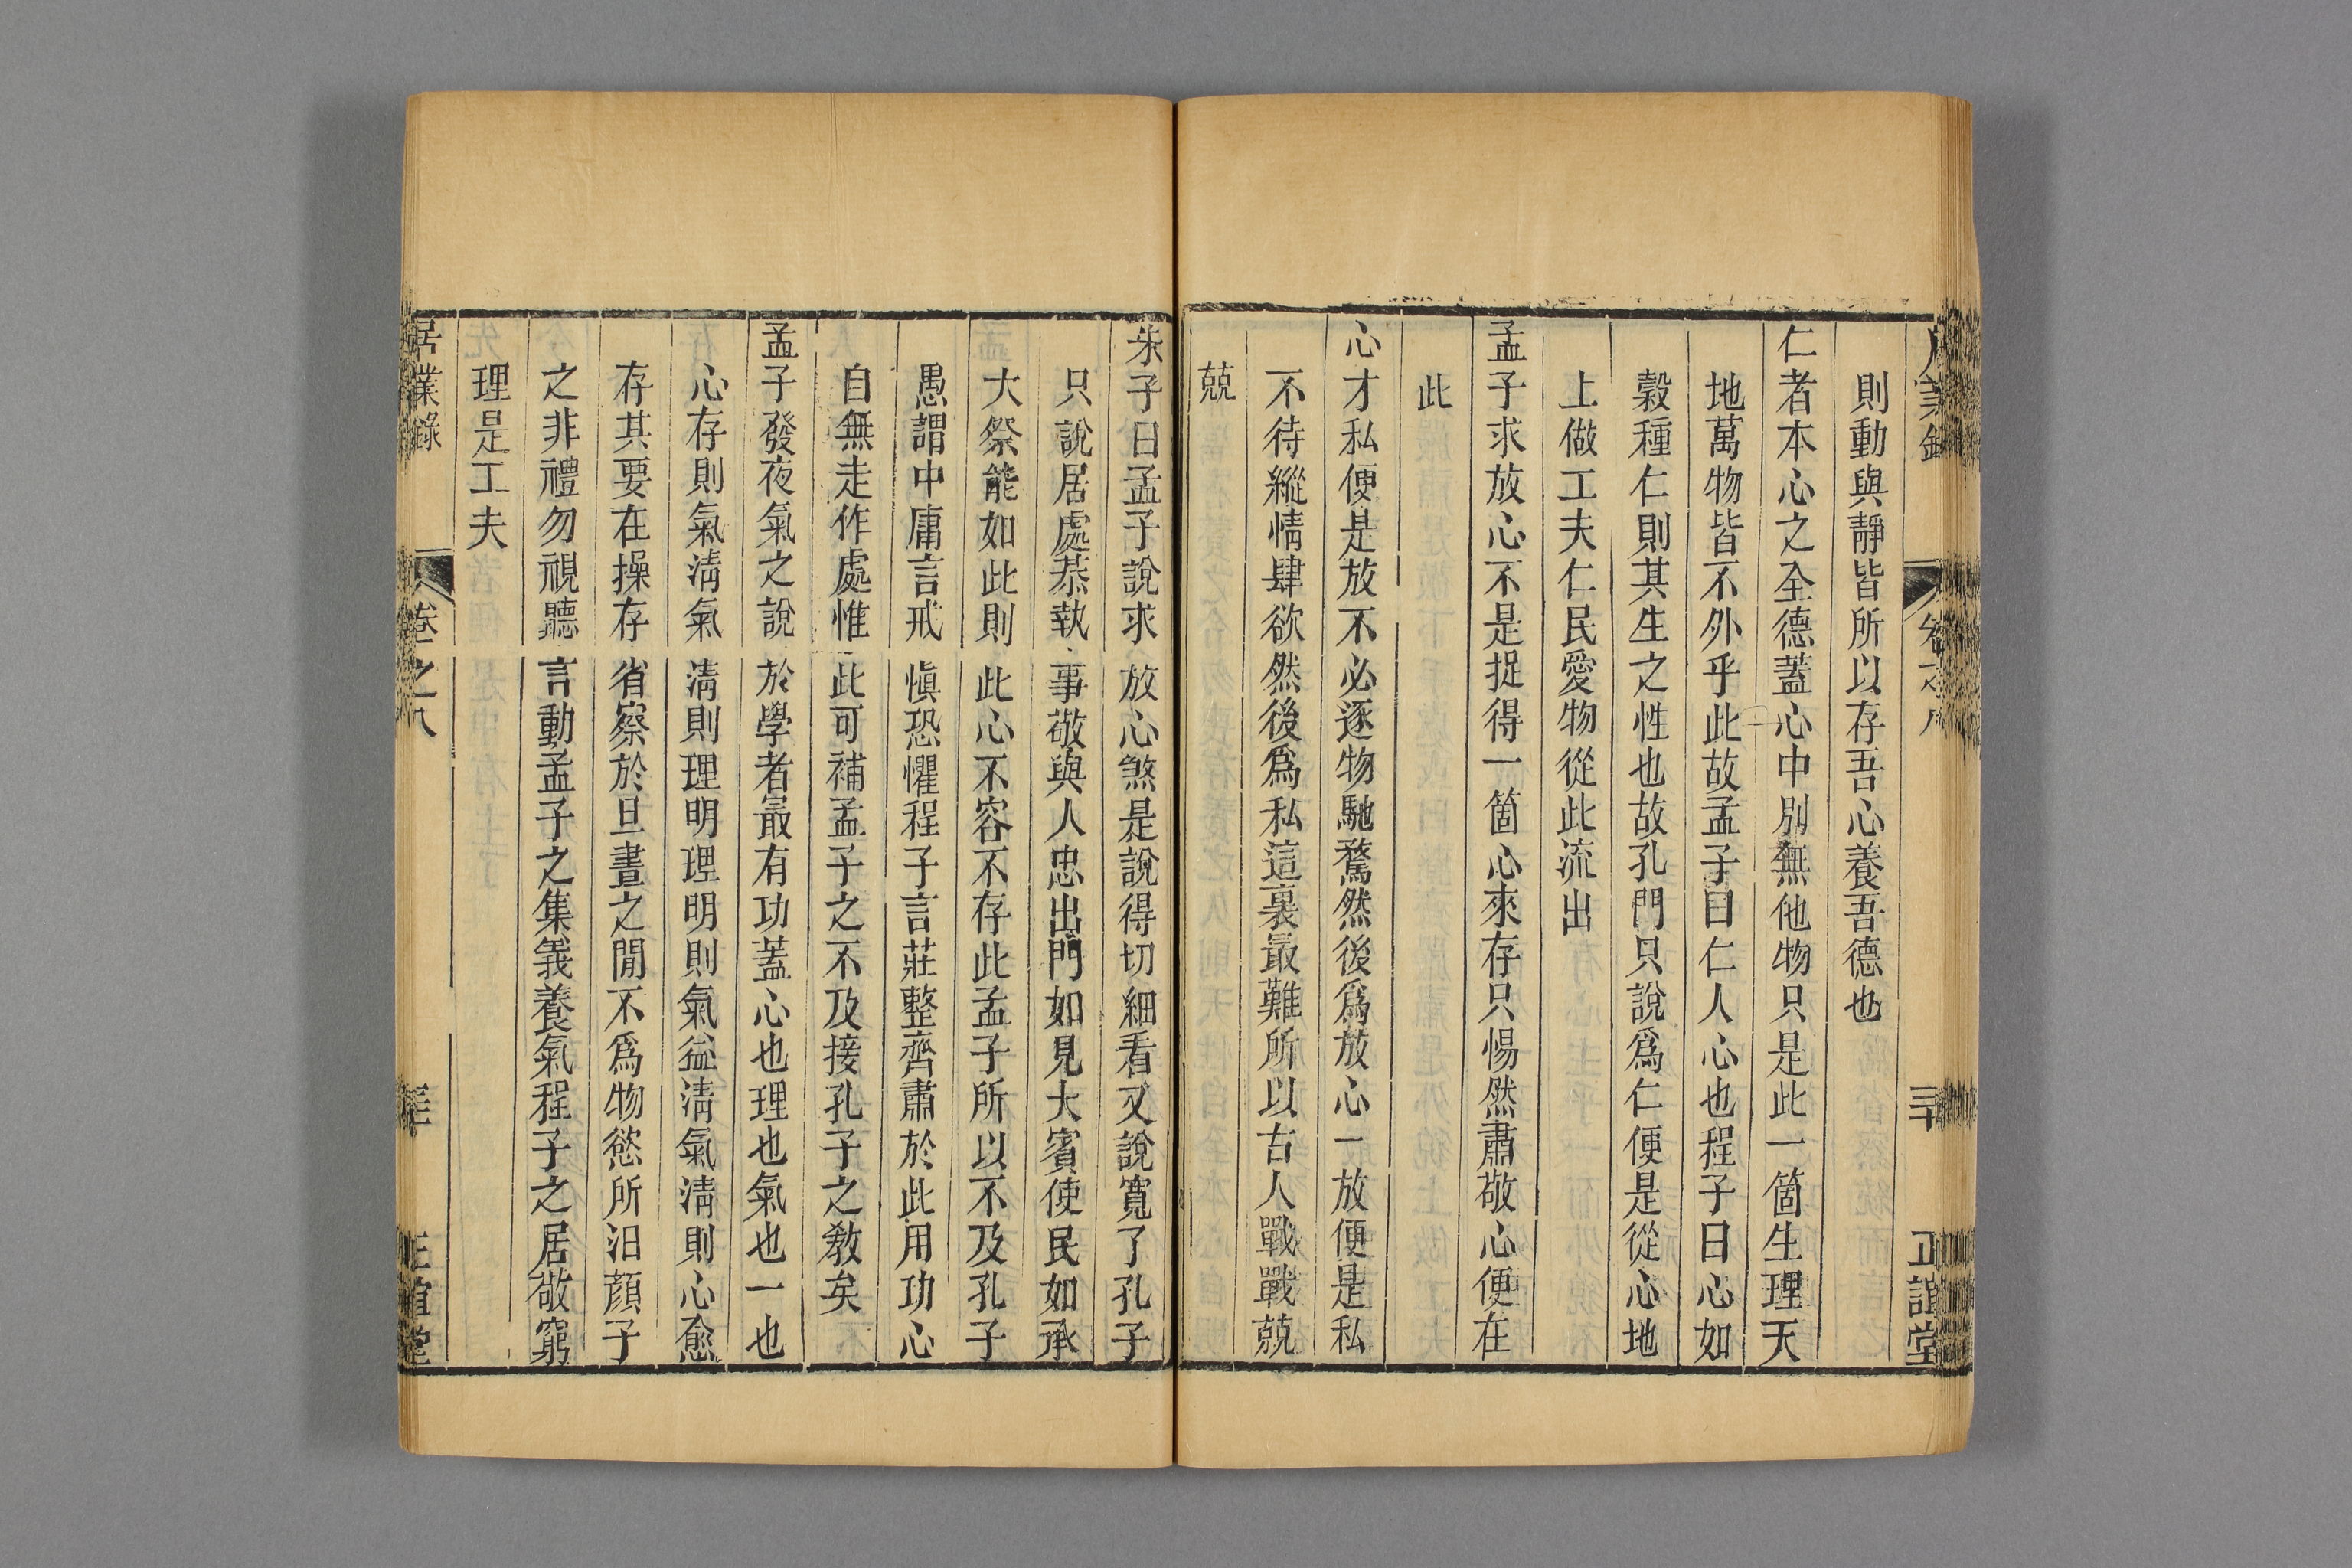 則動與靜皆所以存吾心養吾德也
仁者本心之全德蓋心中別無他物只是此一箇生理天
地萬物皆不外乎此故孟子曰仁人心也程子曰心如
穀種仁則其生之性也故孔門只說爲仁便是從心地
上做工夫仁民愛物從此流出
孟子求放心不是捉得一箇心來存只惕然肅敬心便在
此
心才私便是放不必逐物馳騖然後爲放心一放便是私
不待縱情肆欲然後爲私這裏最難所以古人戰戰兢
兢
朱子曰孟子說求放心煞是說得切細看又說寬了孔子
只說居處恭執事敬與人忠出門如見大賓使民如承
大祭能如此則此心不容不存此孟子所以不及孔子
愚謂中庸言戒愼恐懼程子言莊整齊肅於此用功心
自無走作處惟此可補孟子之不及接孔子之敎矣
孟子發夜氣之說於學者最有功蓋心也理也氣也一也
心存則氣淸氣淸則理明理明則氣益淸氣淸則心愈
存其要在操存省察於旦晝之閒不爲物慾所汩顔子
之非禮勿視聽言動孟子之集義養氣程子之居敬窮
理是工夫
居業錄 卷之八 正誼堂